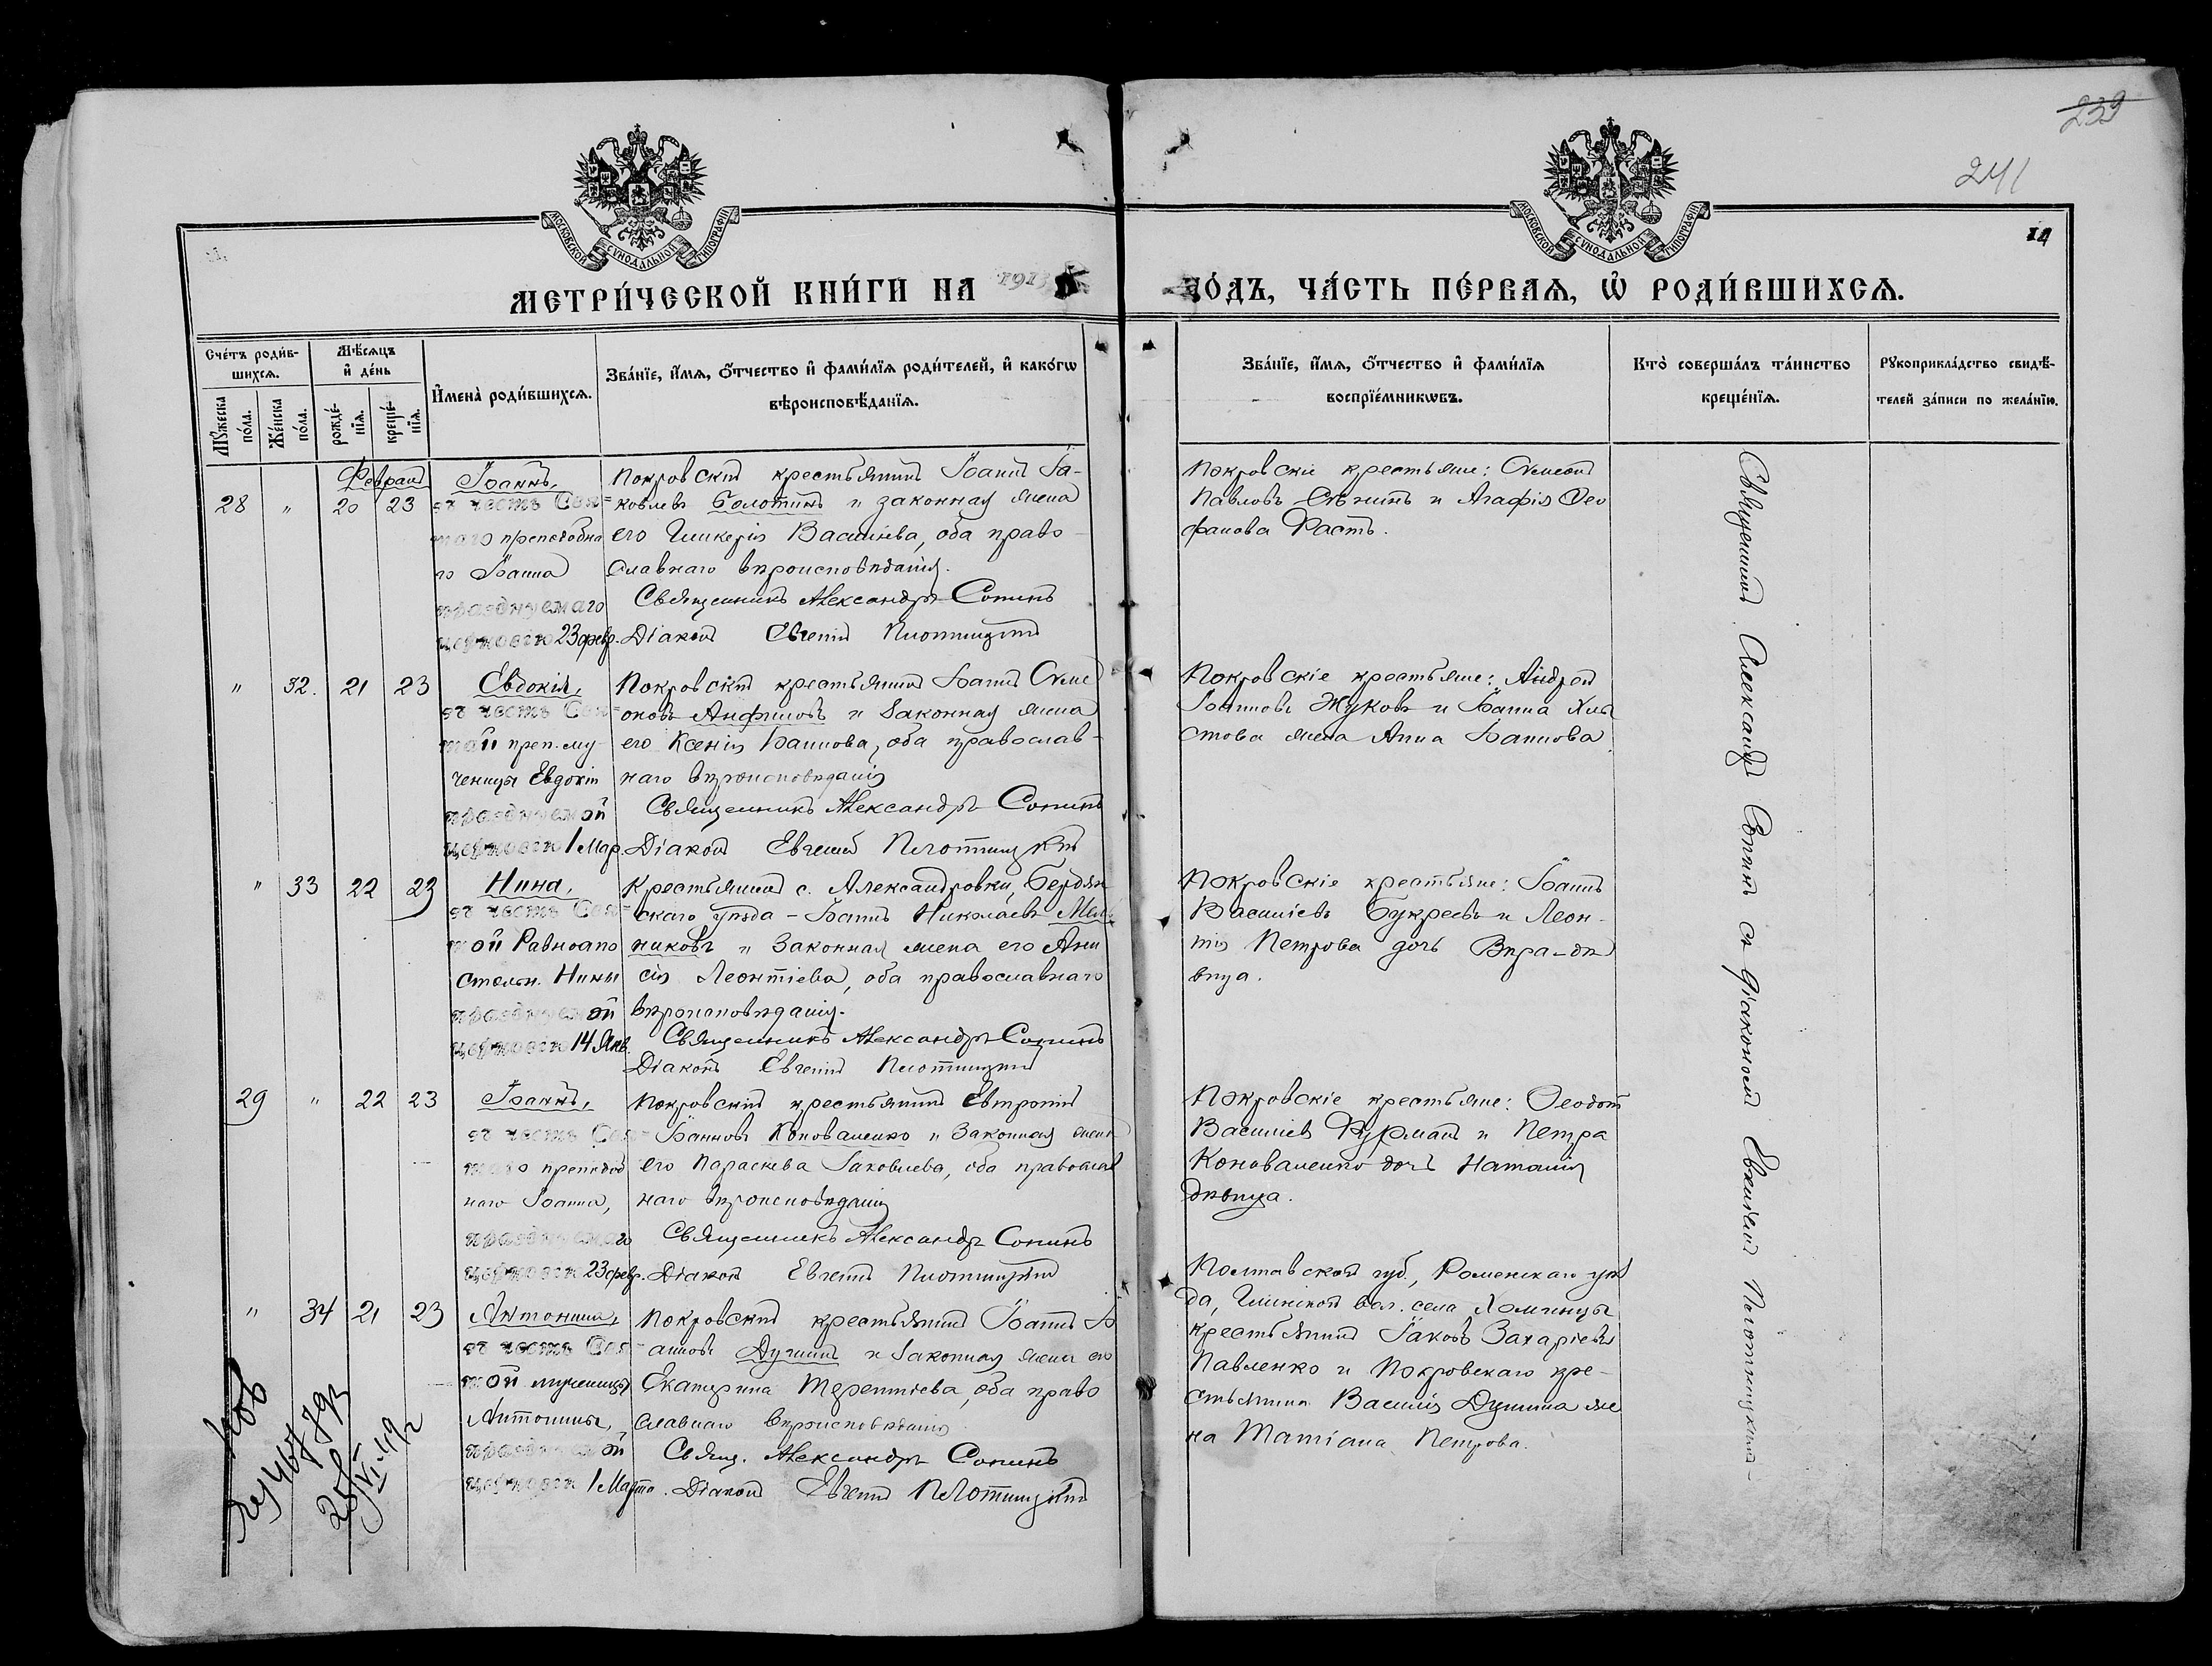 239
241
14
МОСКОВСКОЙ СѴНОДАЛЬНОЙ ТИПОГРАФІИ
МОСКОВСКОЙ СѴНОДАЛЬНОЙ ТИПОГРАФІИ
МЕТРИ́ЧЕСКОЙ КНИ́ГИ НА 1913
ГО́ДЪ, ЧА́СТЬ ПЕ́РВАЯ, Ѡ РОДИ́ВШИХСЯ.
Сче́тъ роди́в-
шихся.
Мѣ́сяцъ
и де́нь
Мꙋ́жеска по́ла.
Же́нска по́ла.
рожде́-нїя.
креще́-нїя.
Имена̀ роди́вшихся.
Зва́нїе, и́мя, о́тчество и фами́лїя роди́телей, и како́гѡ
вѣроисповѣ́данїя.
Зва́нїе, и́мя, о́тчество и фами́лїя
воспрїе́мникѡвъ.
Кто̀ соверша́лъ та́инство
креще́нїя.
Рꙋкоприкла́дство свидѣ́-
телей за́писи по жела́нїю.
Февраль
28 " 20 23
Іоаннъ,
въ честь Свя-
таго преподобна
го Іоанна
празднуемаго
церковію 23 февр.
Покровскій крестьянинъ Іоаннъ Іа-
ковлевъ Болотинъ и законная жена
его Гликерія Васильева, оба право-
славнаго вѣроисповѣданія.
Священникъ Александръ Сопинъ
Діаконъ Евгеній Плотницкій
Покровскіе крестьяне: Сѵмеонъ
Павловъ и Агафія Ѳео
фанова Фастъ.
" 32. 21 23
Евдокія,
въ честь Свя-
той преп. му-
ченицы Евдокіи
празднуемой
церковію 1 Мар.
Покровскій крестьянинъ Іоаннъ Сѵме
оновъ Анфиловъ и законная жена
его Ксенія Іоаннова, оба православ-
наго вѣроисповѣданія
Священникъ Александръ Сопинъ
Діаконъ Евгеній Плотницкій
Покровскіе крестьяне: Андрей
Іоанновъ Жуковъ и Іоанна Хлы
стова жена Анна Іоаннова
" 33 22 23
Нина,
въ честь Свя-
той Равноапо
стольн. Нины
празднуемой
церковію 14 Янв.
Крестьянинъ с. Александровки, Бердян
скаго уѣзда - Іоаннъ Николаевъ Мель
никовъ и законная жена его Ани
сія Леонтіева, оба православнаго
вѣроисповѣданія.
Священникъ Александръ Сопинъ
Діаконъ Евгеній Плотницкій
Покровскіе крестьяне: Іоаннъ
Васильевъ Букреевъ и Леон-
тія Петрова дочь Вѣра-дѣ
вица.
29 " 22 23
Іоаннъ,
въ честь Свя-
таго преподоб
наго Іоанна,
празднуемаго
церковію 23 февр.
Покровскій крестьянинъ Евтропій
Іоанновъ Коноваленко и законная жена
его Параскева Іаковлева, оба православ
наго вѣроисповѣданія
Священникъ Александръ Сопинъ
Діаконъ Евгеній Плотницкій
Покровскіе крестьяне: Ѳеодотъ
Васильевъ Фурманъ и Петра
Коноваленко дочь Наталія
дѣвица.
" 34 21 23
Антонина,
въ честь Свя-
той мученицы
Антонины,
празднуемой
церковію 1 Марта.
Покровскій крестьянинъ Іоаннъ Іо
анновъ Душинъ и законная жена его
Екатерина Терентіева, оба право
славнаго вѣроисповѣданія
Свящ. Александръ Сопинъ
Діаконъ Евгеній Плотницкій
Полтавской губ., Роменскаго уѣз
да, Глинской вол. села Хоминцы
крестьянинъ Іаковъ Захаріевъ
Павленко и Покровскаго кре-
стьянина Василія Душина же
на Татіана Петрова.
Священникъ Александръ Сопинъ съ діакономъ Евгеніемъ Плотницкимъ